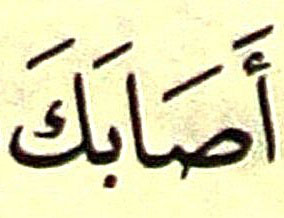 أَصَابَكَ